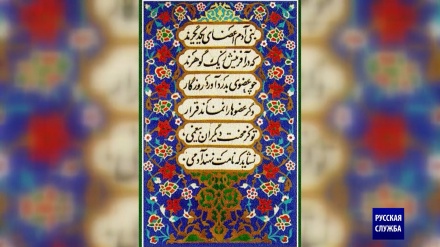 بنی آدم اعضای یکدیگرند
که در آفرینش ز یک گوهرند
چو عضوی بدرد آورد روزگار
دگر عضوها را نماند قرار
تو کز محنت دیگران بی غمی
نشاید که نامت نهند آدمی
РУССКАЯ
СЛУЖБА